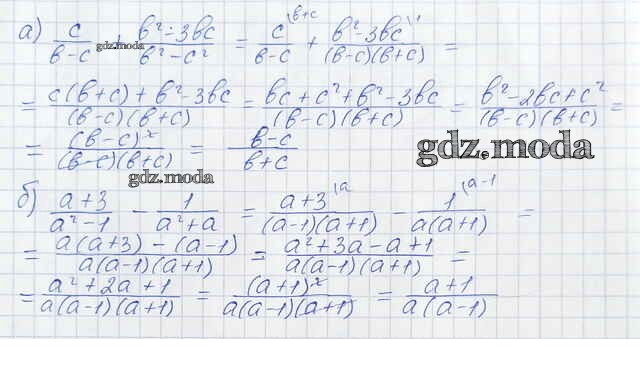 а) c/(в-c) + (в²-3вc)/(в²-c²) = c\в+c/(в-c) + (в²-3вc\1)/((в-c)(в+c)) =
= (c(в+c)+в²-3вc)/((в-c)(в+c)) = (вc+c²+в²-3вc)/((в-c)(в+c)) = (в²-2вc+c²)/((в-c)(в+c)) =
= (в-c)²/((в-c)(в+c)) = (в-c)/(в+c)
gdz.moda
gdz.moda
gdz.moda
б) (a+3)/(a²-1) - 1/(a²+a) = (a+3\a)/((a-1)(a+1)) - 1\a-1/(a(a+1)) =
= (a(a+3)-(a-1))/(a(a-1)(a+1)) = (a²+3a-a+1)/(a(a-1)(a+1)) =
= (a²+2a+1)/(a(a-1)(a+1)) = (a+1)²/(a(a-1)(a+1)) = (a+1)/(a(a-1))